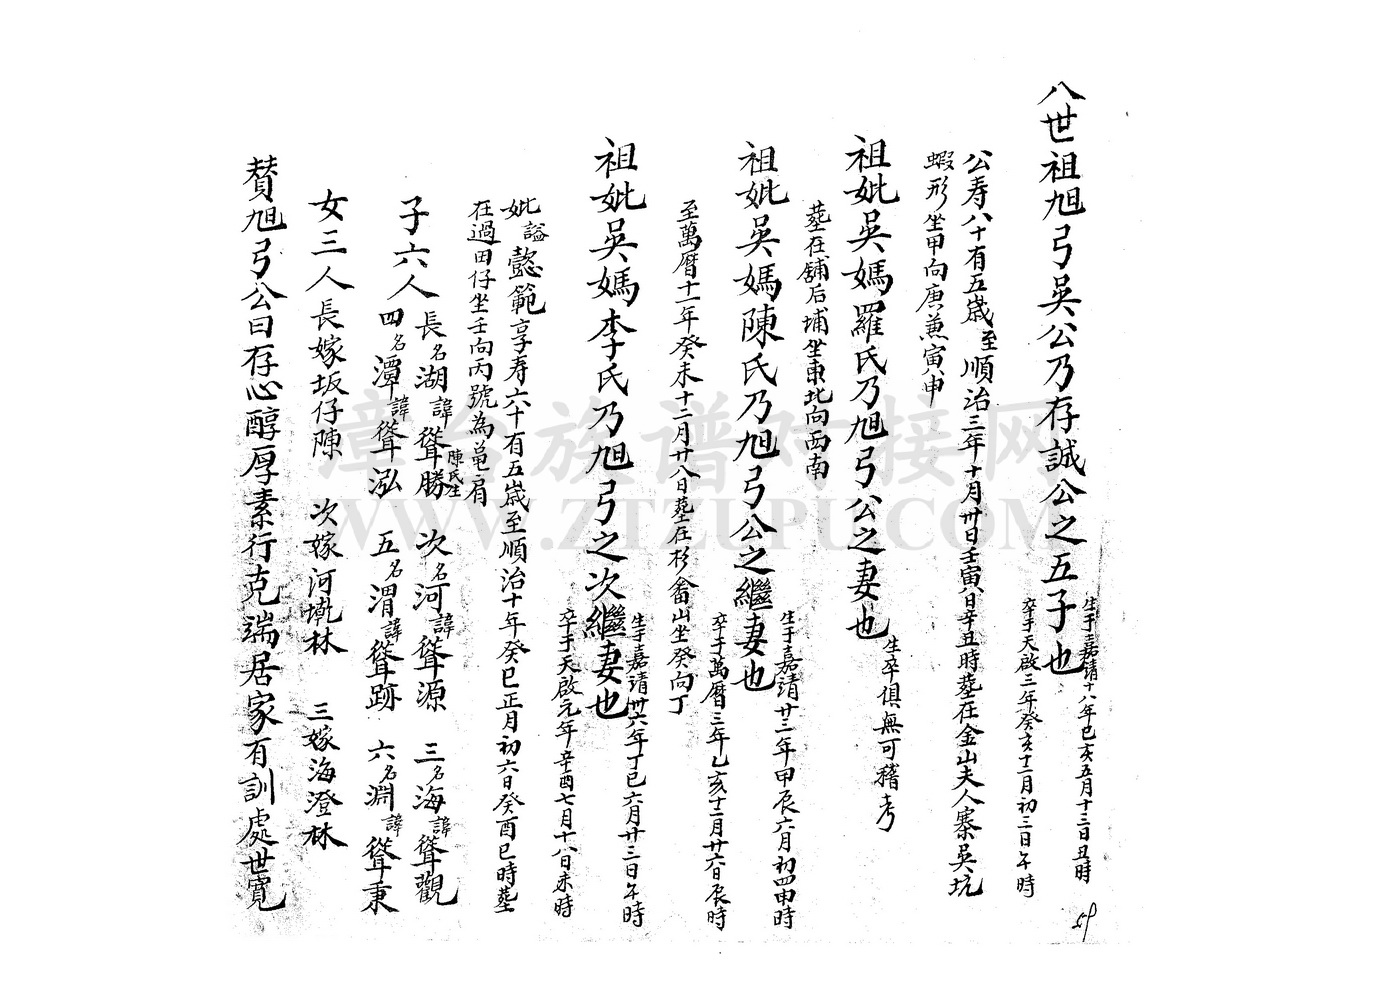 八世祖旭弓吳公乃存誠公之五子也
生于嘉靖十八年己亥五月十三日丑時
卒于天啟三年癸亥十二月初三日午時
公寿八十有五歲至順治三年十月廿日壬寅日辛丑時塟在金山夫人寨吳坑
蝦形坐甲向庚兼寅申
祖妣吳媽羅氏乃旭弓公之妻也
生卒俱無可稽考
塟在舖后埔坐東北向西南
祖妣吳媽陳氏乃旭弓公之繼妻也
生于嘉靖廿三年甲辰六月初四申時
卒于萬曆三年乙亥十二月廿六日辰時
至萬曆十一年癸未十二月廿八日塟在杉畬山坐癸向丁
祖妣吳媽李氏乃旭弓之次繼妻也
生于嘉靖卅六年丁巳六月廿三日午時
卒于天啟元年辛酉七月十八日未時
妣謚懿範享寿六十有五歲至順治十年癸巳正月初六日癸酉巳時塟
在過田仔坐壬向丙號為黽肩
子六人
長名湖諱聳勝陳氏生 次名河諱聳源 三名海諱聳觀
四名潭諱聳泓 五名渭諱聳跡 六名淵諱聳秉
女三人長嫁坂仔陳 次嫁河墘林 三嫁海澄林
賛旭弓公曰存心醇厚素行克端居家有訓處世寬
59
漳台族谱对接网
WWW.ZTZUPU.COM